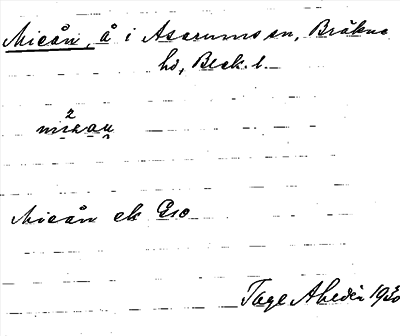 Mieån, å i Asarums sn, Bräkne
hd, Blek. l.
2
mi2aṇ
Mieån ek Eso
Tage Aheder 1930